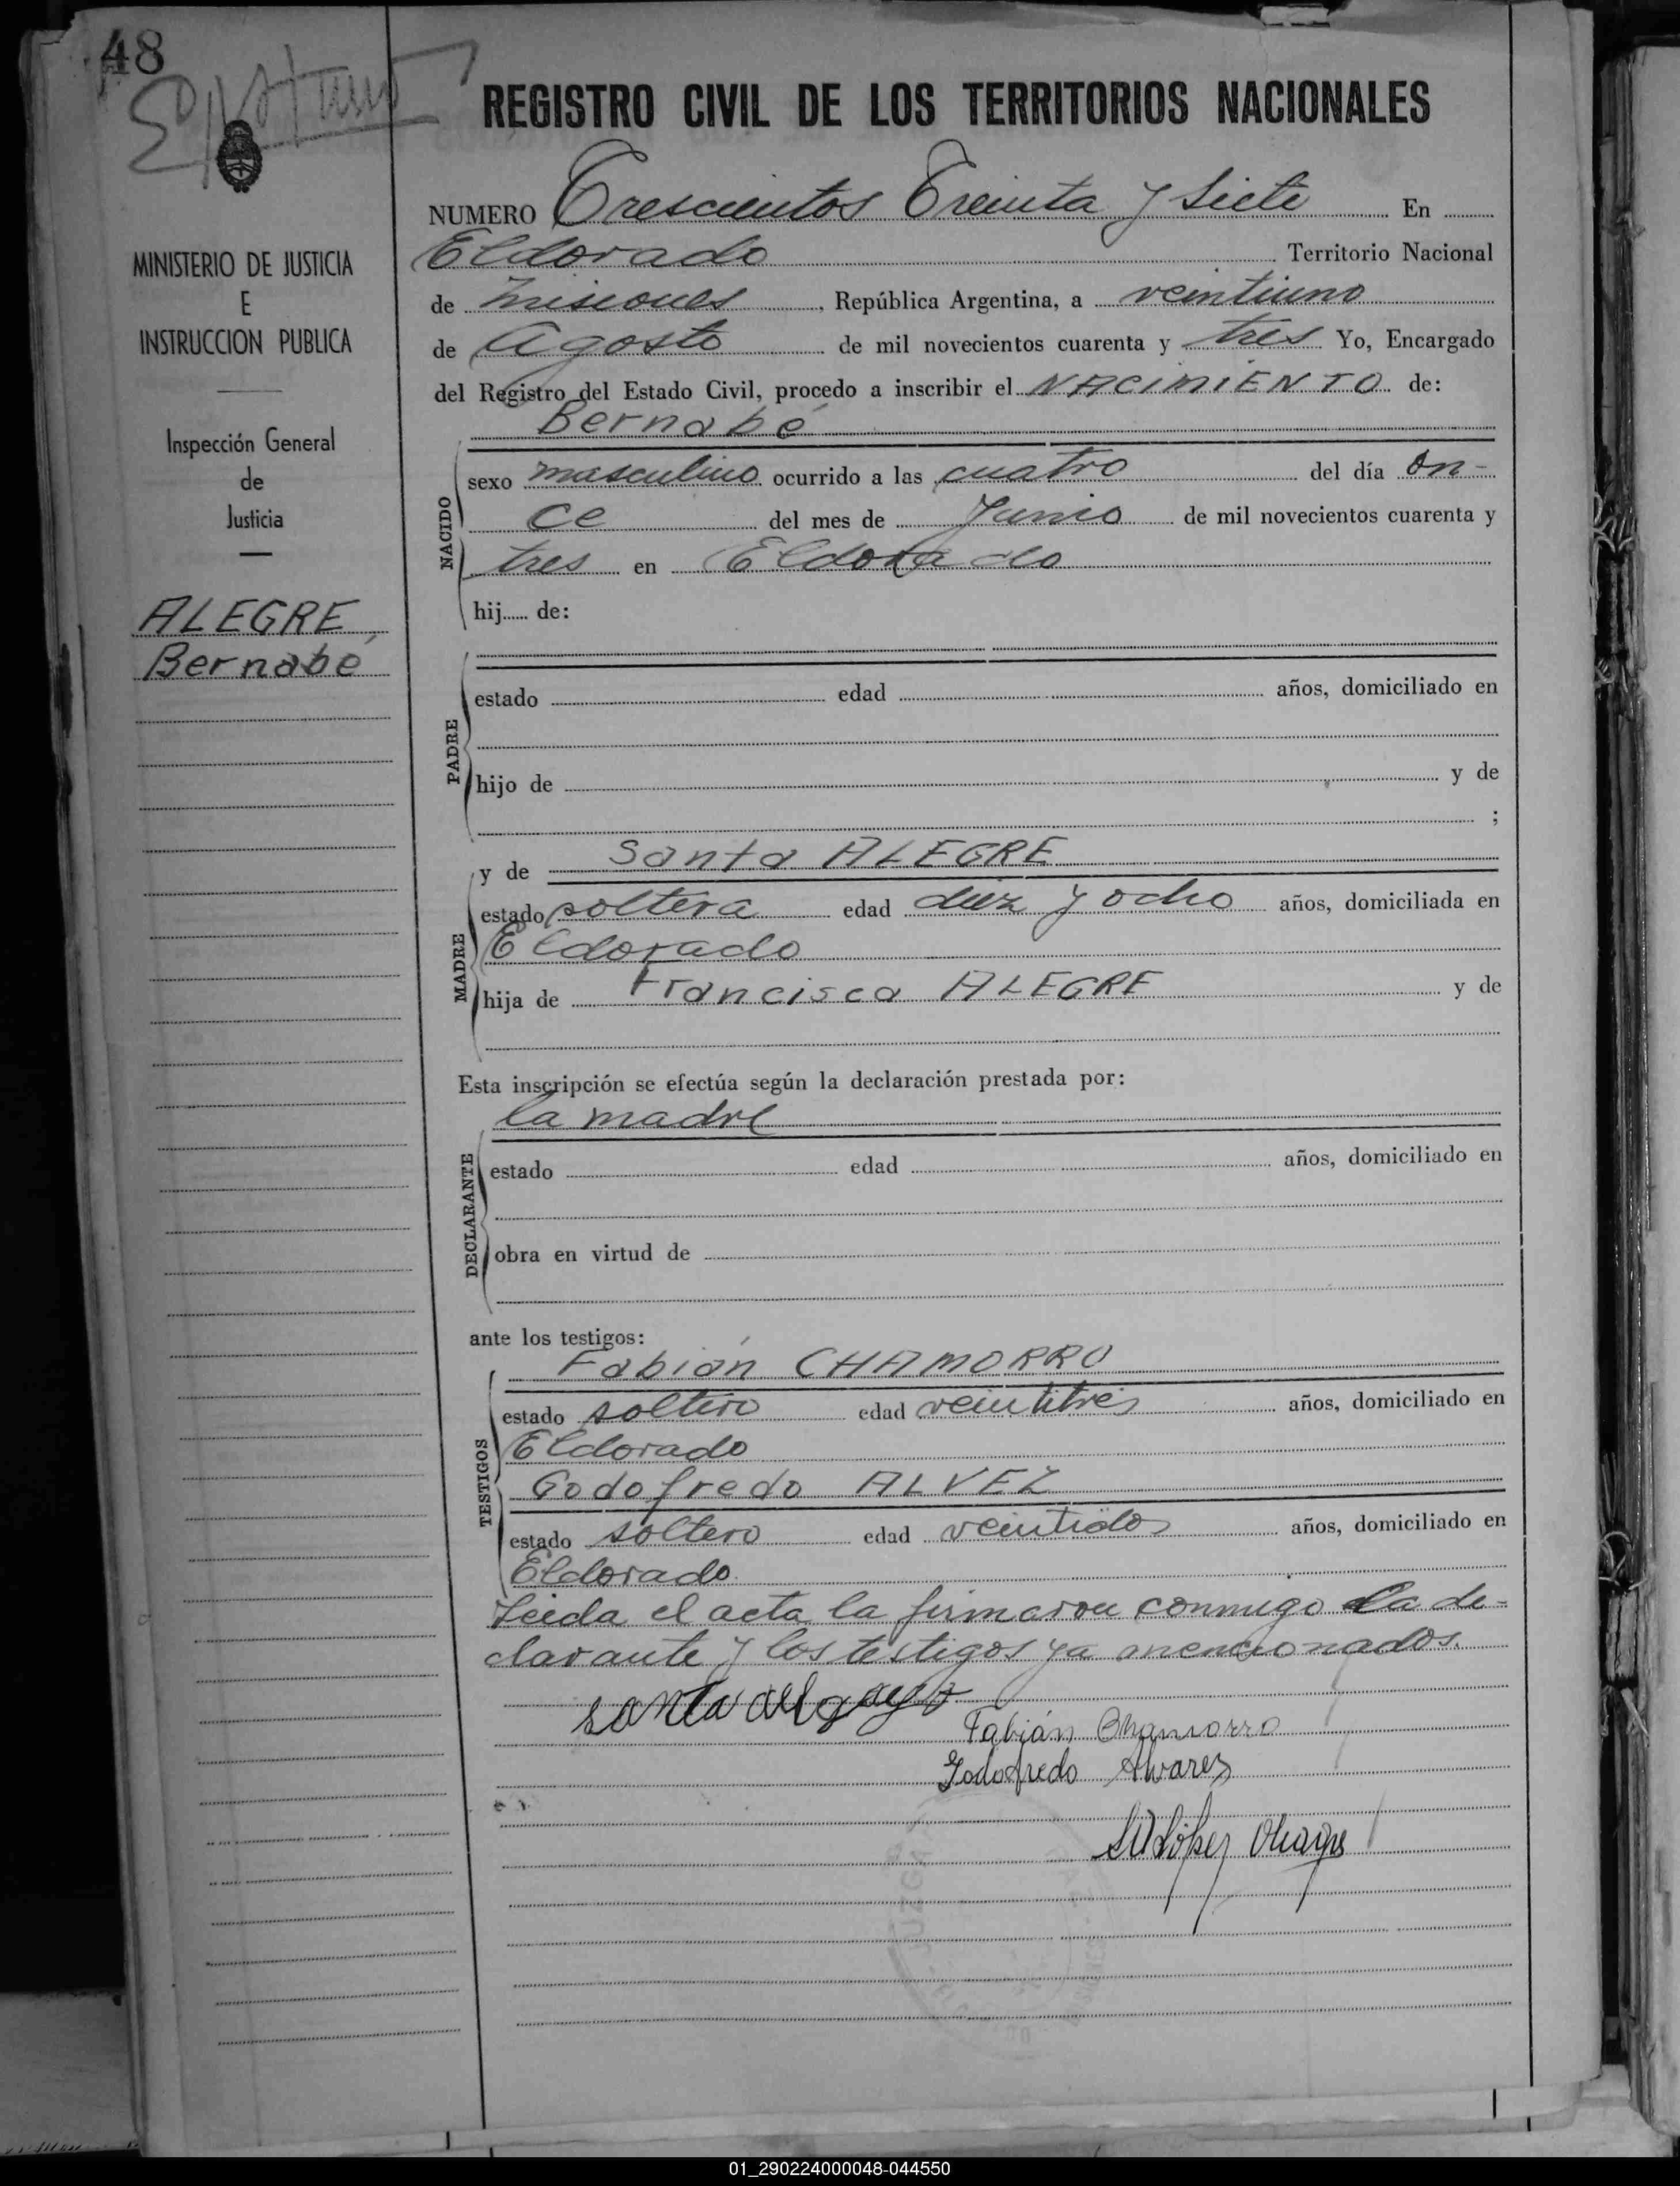 48
REGISTRO CIVIL DE LOS TERRITORIOS NACIONALES
NUMERO Trescientos Treinta y Siete En
Eldorado Territorio Nacional
de Misiones, República Argentina, a veintiuno
de Agosto de mil novecientos cuarenta y tres Yo, Encargado
del Registro del Estado Civil, procedo a inscribir el NACIMIENTO de:
Bernabé
sexo masculino ocurrido a las cuatro del día on-
ce del mes de Junio de mil novecientos cuarenta y
tres en Eldorado
hij...... de:
NACIDO
MINISTERIO DE JUSTICIA
E
INSTRUCCION PUBLICA
Inspección General
de
Justicia
ALEGRE,
Bernabé
estado edad años, domiciliado en
hijo de y de
;
PADRE
y de Santa ALEGRE
estado soltera edad diez y ocho años, domiciliada en
Eldorado
hija de Francisca ALEGRE y de
MADRE
Esta inscripción se efectúa según la declaración prestada por:
la madre
estado edad años, domiciliado en
obra en virtud de
DECLARANTE
ante los testigos:
Fabián CHAMORRO
estado soltero edad veintitrés años, domiciliado en
Eldorado
Godofredo ALVEZ
estado soltero edad veintidos años, domiciliado en
Eldorado
TESTIGOS
Leida el acta la firmaron conmigo la de-
clarante y los testigos ya mencionados.
santa
Fabián Chamorro
Godofredo Alvarez
López
01_290224000048-044550